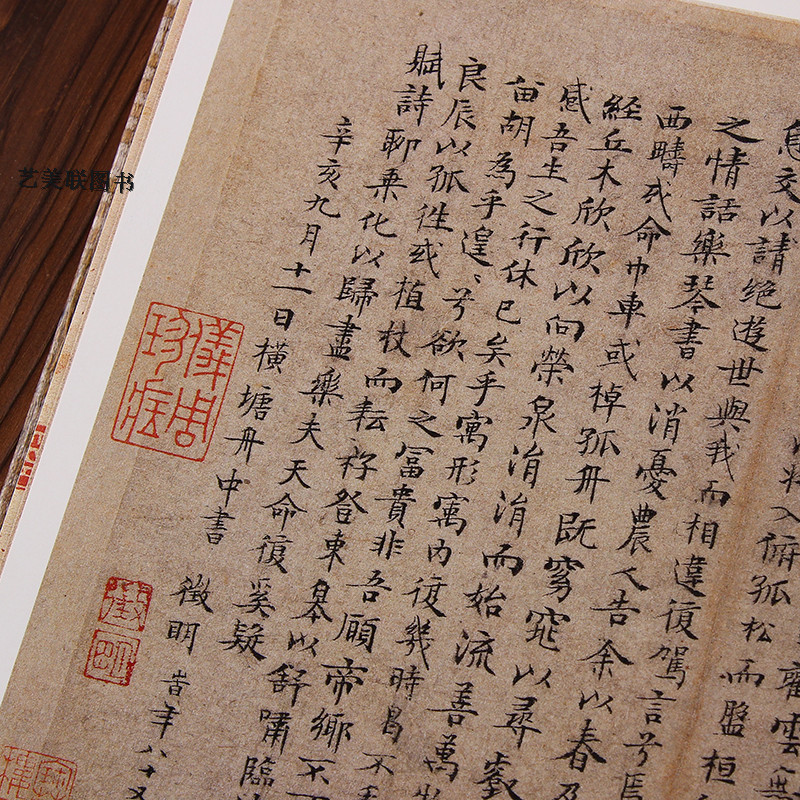 雲無
將入俯孤松而盤桓
息交以請絕遊世與我而相違復駕言兮焉
之情話樂琴書以消憂農人告余以春及
西疇或命巾車或棹孤舟既窮窕以尋壑
經丘木欣欣以向榮泉涓涓而始流善萬
感吾生之行休已矣乎寓形寓內復幾時曷不
留胡為乎遑〻兮欲何之冨貴非吾願帝鄉不
良辰以孤往或植杖而耘耔登東皋以舒嘯臨
賦詩聊乘化以歸盡樂夫天命復奚疑
辛亥九月十一日橫塘舟中書
徵明 旹年八十又
儀周珍藏
徵明
艺美联图书